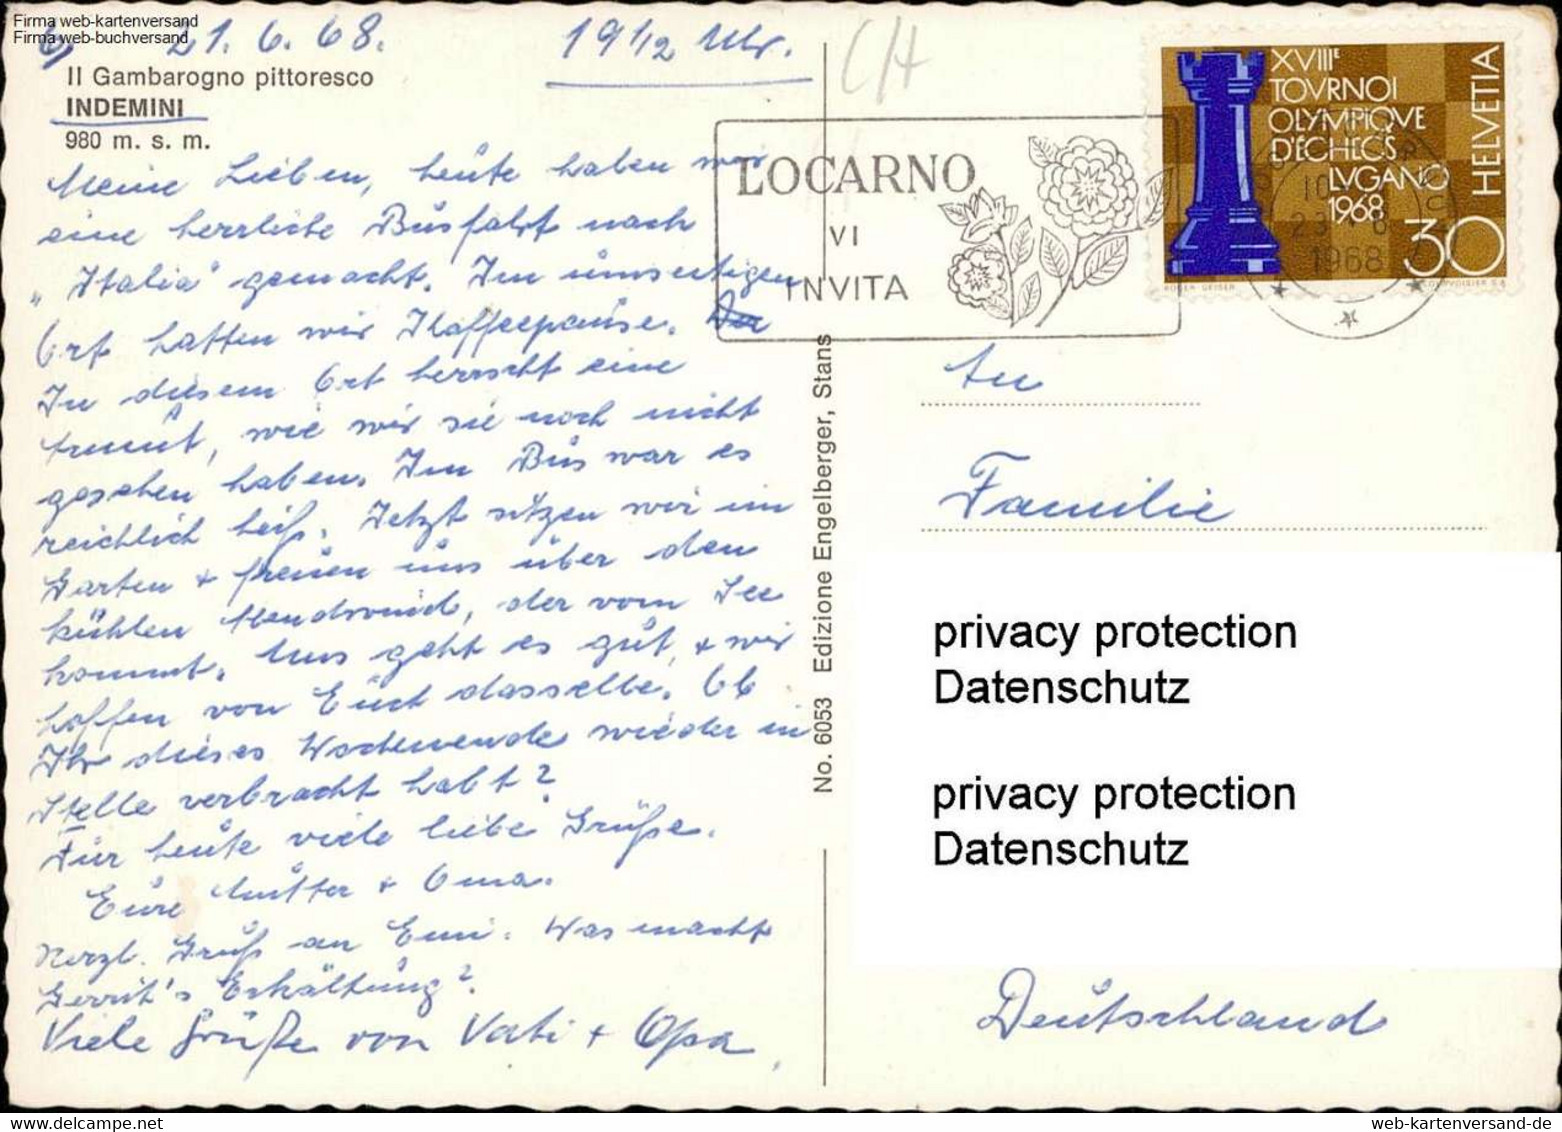 Firma web-kartenversand
Firma web-buchversand
6) 21. 6. 68.
19 1/2 Uhr.
Il Gambarogno pittoresco
INDEMINI
980 m. s. m.
Meine Lieben, heute haben wir
eine herrliche Busfahrt nach
"Italia" gemacht. Im umseitigen
Ort hatten wir Kaffeepause. Der
In diesem Ort herrscht eine
Armut, wie wir sie noch nicht
gesehen haben. Im Bus war es
reichlich heiß. Jetzt sitzen wir im
Garten + freuen uns über den
kühlen Abendwind, der vom See
kommt. Uns geht es gut, + wir
hoffen von Euch dasselbe. Ob
Ihr dieses Wochenende wieder in
Stelle verbracht habt?
Für heute viele liebe Grüße.
Eure Mutter + Oma.
Herzl. Gruß an Emi. Was macht
Gerrit's Erkältung?
Viele Grüße von Vati + Opa,
No. 6053 Edizione Engelberger, Stans
CH
LOCARNO
VI
INVITA
XVIIIE
TOVRNOI
OLYMPIQVE
D'ÉCHECS
LVGANO
1968
HELVETIA
30
COURVOISIER S.A.
1968
An
Familie
privacy protection
Datenschutz
privacy protection
Datenschutz
Deutschland
web-kartenversand-de